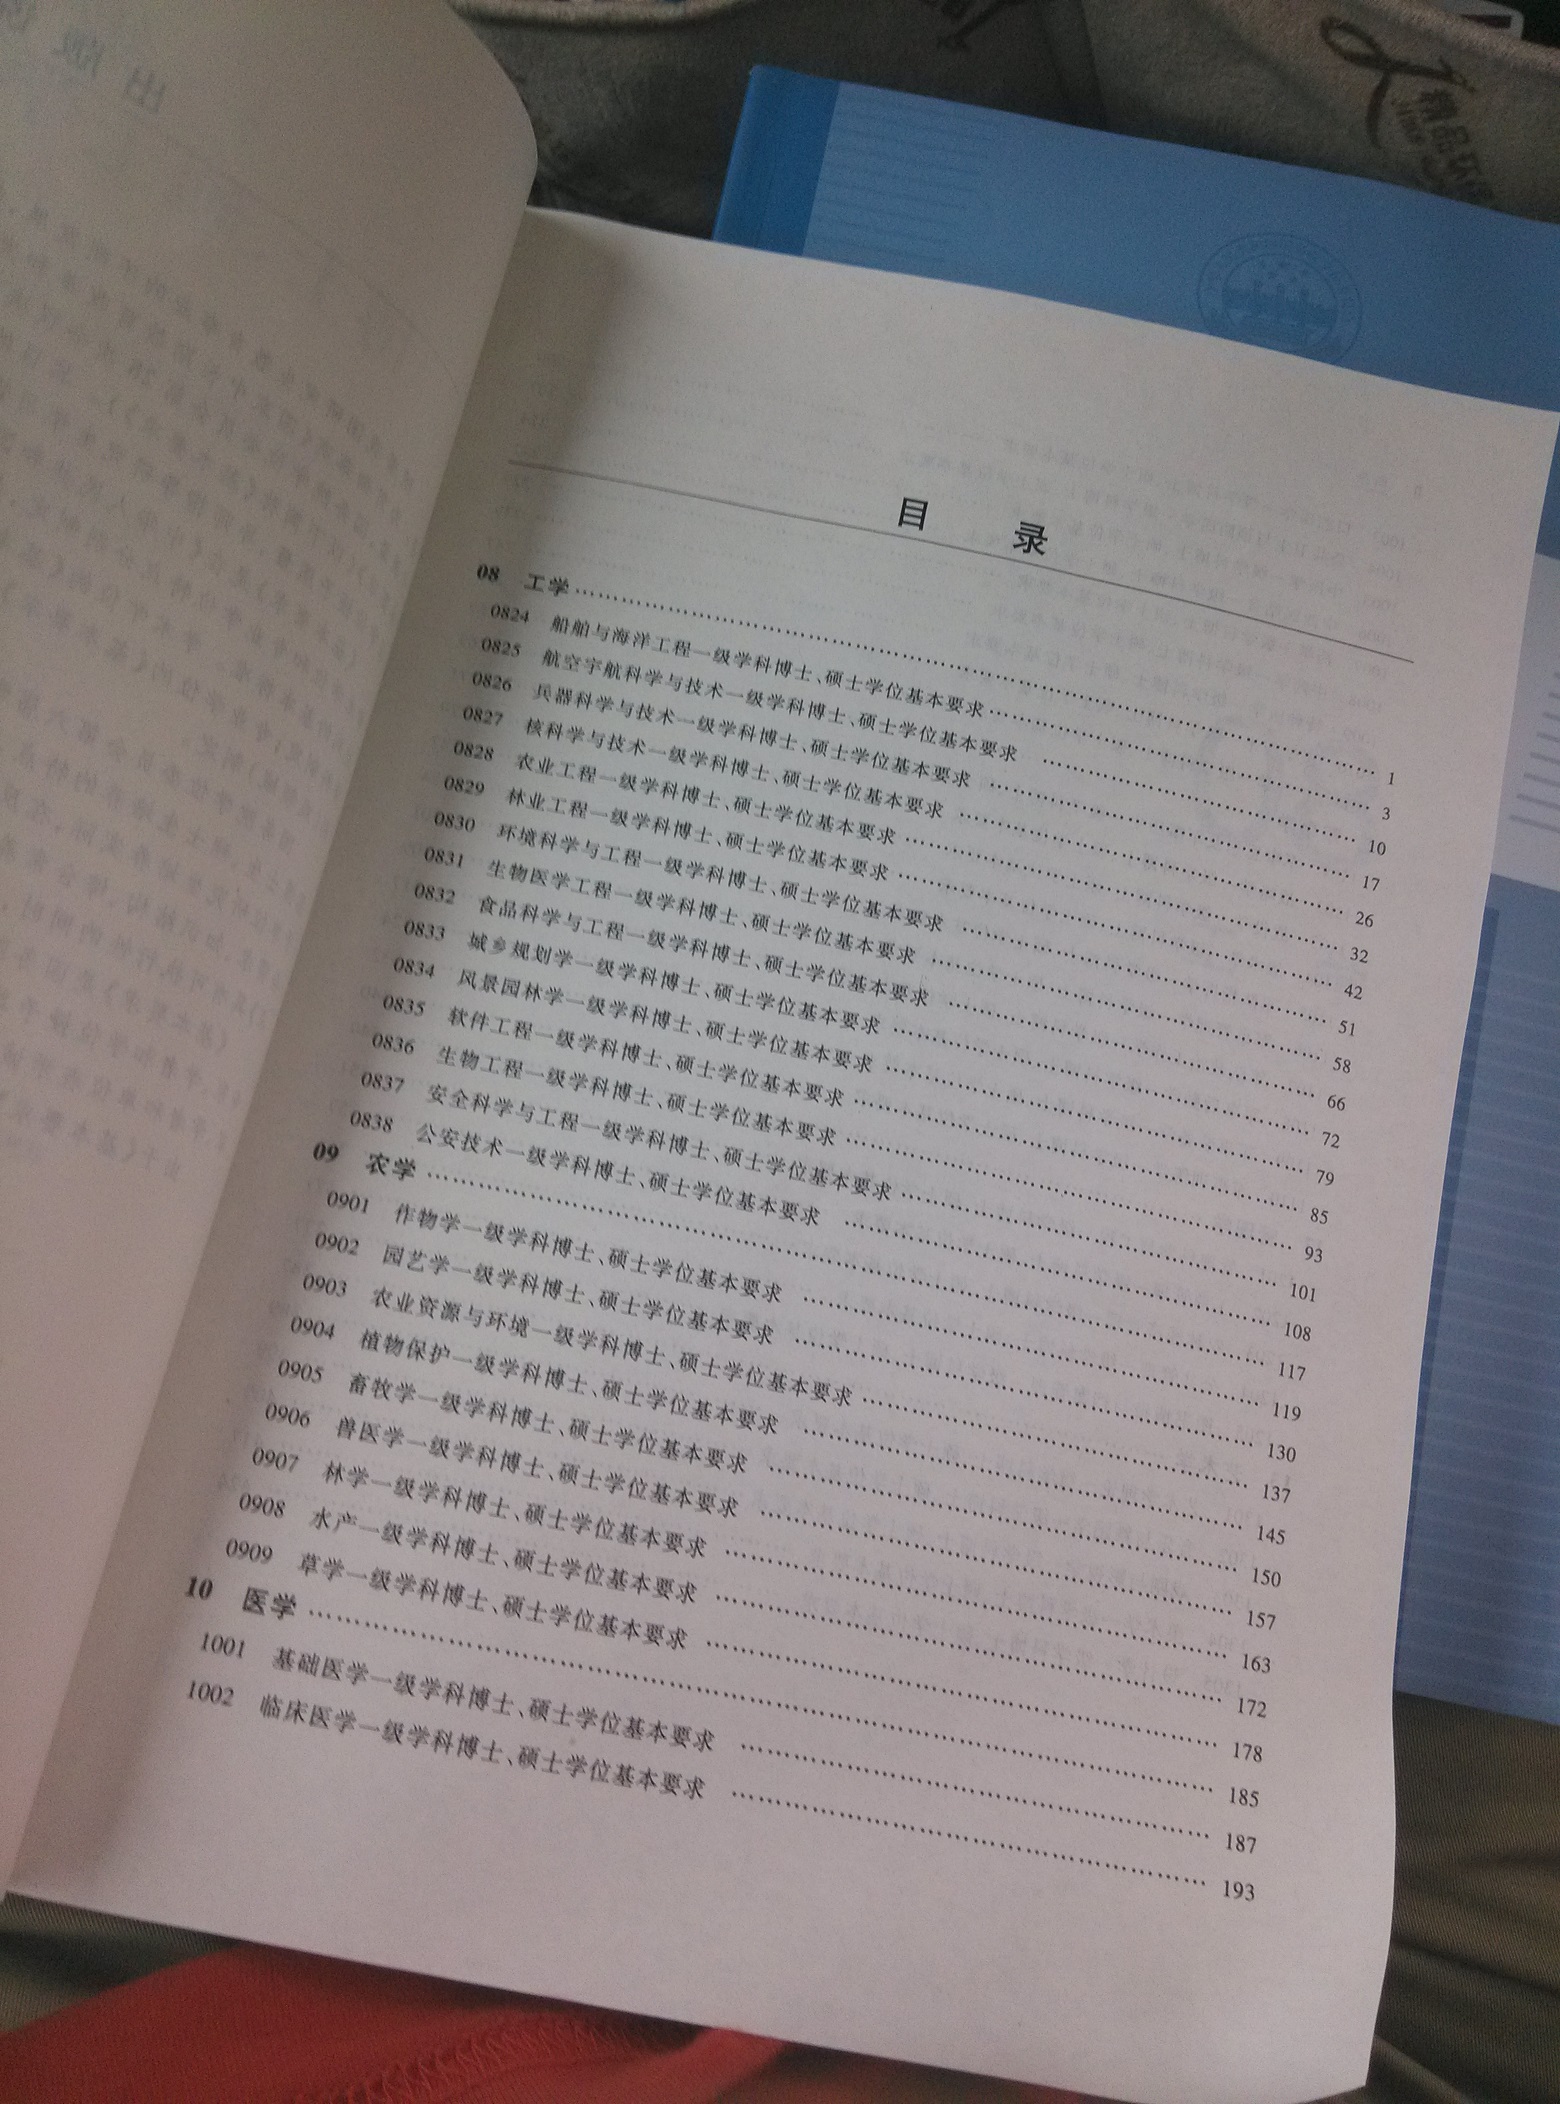 目 录
08 工学……………………………………………………1
0824 船舶与海洋工程一级学科博士、硕士学位基本要求……………………3
0825 航空宇航科学与技术一级学科博士、硕士学位基本要求……………………10
0826 兵器科学与技术一级学科博士、硕士学位基本要求……………………17
0827 核科学与技术一级学科博士、硕士学位基本要求……………………26
0828 农业工程一级学科博士、硕士学位基本要求……………………32
0829 林业工程一级学科博士、硕士学位基本要求……………………42
0830 环境科学与工程一级学科博士、硕士学位基本要求……………………51
0831 生物医学工程一级学科博士、硕士学位基本要求……………………58
0832 食品科学与工程一级学科博士、硕士学位基本要求……………………66
0833 城乡规划学一级学科博士、硕士学位基本要求……………………72
0834 风景园林学一级学科博士、硕士学位基本要求……………………79
0835 软件工程一级学科博士、硕士学位基本要求……………………85
0836 生物工程一级学科博士、硕士学位基本要求……………………93
0837 安全科学与工程一级学科博士、硕士学位基本要求……………………101
0838 公安技术一级学科博士、硕士学位基本要求……………………108
09 农学……………………………………………………117
0901 作物学一级学科博士、硕士学位基本要求……………………119
0902 园艺学一级学科博士、硕士学位基本要求……………………130
0903 农业资源与环境一级学科博士、硕士学位基本要求……………………137
0904 植物保护一级学科博士、硕士学位基本要求……………………145
0905 畜牧学一级学科博士、硕士学位基本要求……………………150
0906 兽医学一级学科博士、硕士学位基本要求……………………157
0907 林学一级学科博士、硕士学位基本要求……………………163
0908 水产一级学科博士、硕士学位基本要求……………………172
0909 草学一级学科博士、硕士学位基本要求……………………178
10 医学……………………………………………………185
1001 基础医学一级学科博士、硕士学位基本要求……………………187
1002 临床医学一级学科博士、硕士学位基本要求……………………193